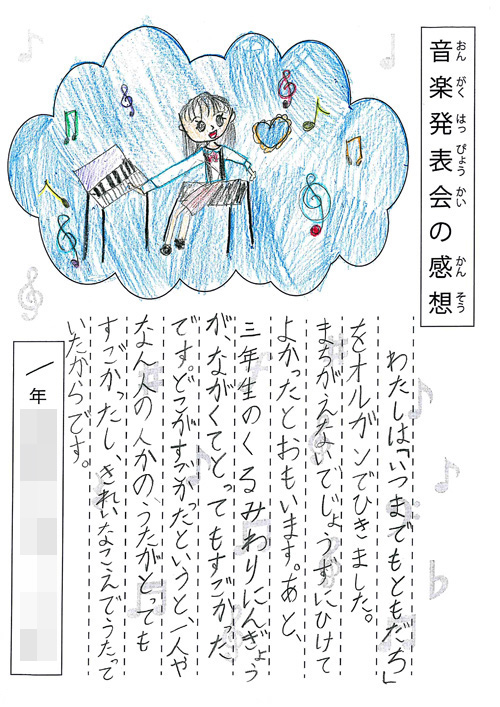 音楽発表会の感想
おん がく はっ ぴょう かい かん そう
わたしは「いつまでもともだち」
をオルガンでひきました。
まちがえないでじょうずにひけて
よかったとおもいます。あと、
三年生のくるみわりにんぎょう
が、ながくてとってもすごかった
です。どこがすごがったというと、一人や
なん人の人かの、うたがとっても
すごかったし、きれいなこえでうたって
いたからです。
一年